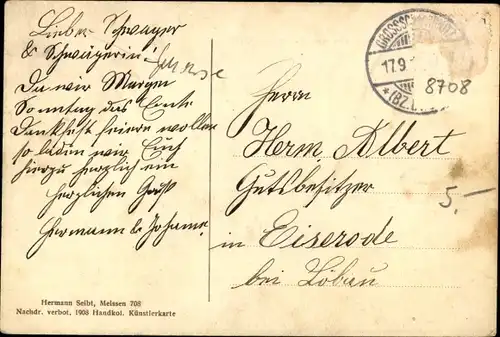 Lieber Schwager
& Schwägerin!
Da wir Morgen
Sonntag das Ernte
Dankfest feiern wollen
so laden wir Euch
hierzu herzlich ein
herzlichen Gruß
Hermann & Johanne.
Herrn
Herm. Albert
Gutsbesitzer
in Eiserode
bei Löbau
17.9.
*(BZ.
8708
5.-
Hermann Seibt, Meissen 708
Nachdr. verbot. 1908 Handkol. Künstlerkarte